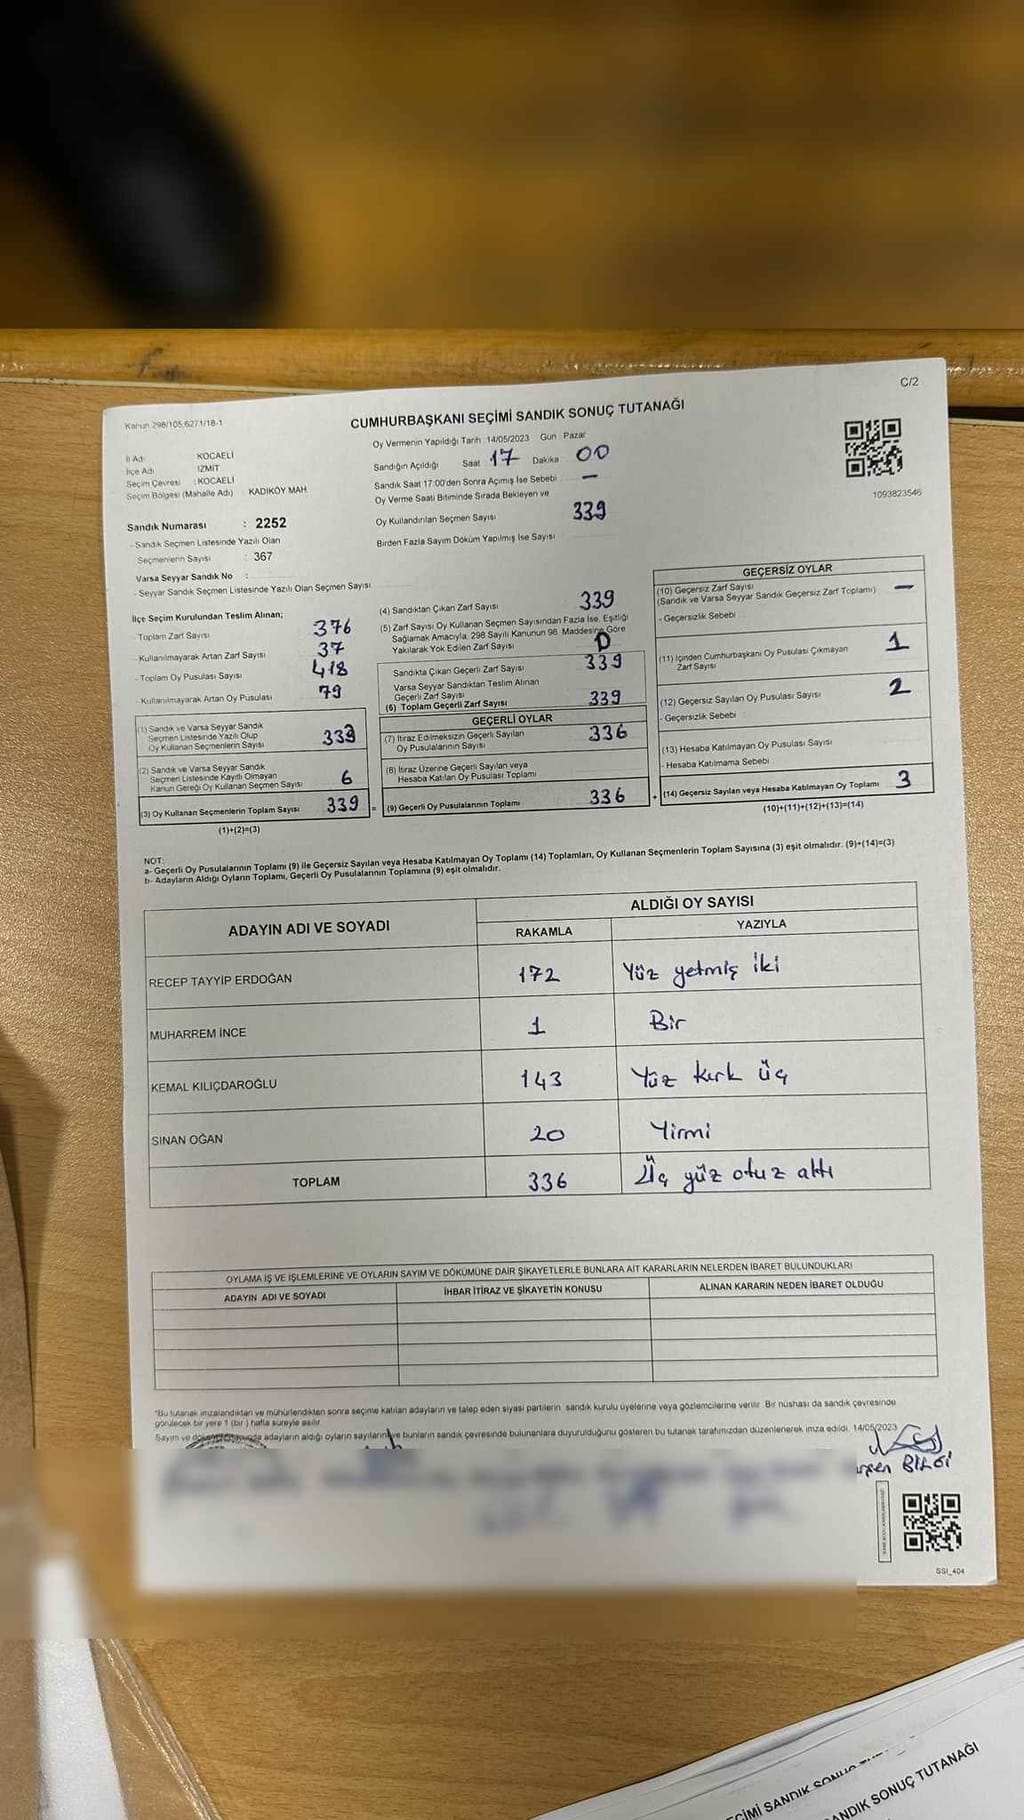 C/2
Kanun 298/105;6271/18-1
CUMHURBAŞKANI SEÇİMİ SANDIK SONUÇ TUTANAĞI
Oy Vermenin Yapıldığı Tarih :14/05/2023 Gün : Pazar
İl Adı KOCAELİ
İlçe Adı İZMİT
Seçim Çevresi : KOCAELİ
Seçim Bölgesi (Mahalle Adı) : KADIKÖY MAH
Sandığın Açıldığı Saat 17 Dakika 00
Sandık Saat 17:00'den Sonra Açımış İse Sebebi : —
Oy Verme Saati Bitiminde Sırada Bekleyen ve
Oy Kullandırılan Seçmen Sayısı 339
Birden Fazla Sayım Döküm Yapılmış İse Sayısı
1093823546
Sandık Numarası : 2252
- Sandık Seçmen Listesinde Yazılı Olan
Seçmenlerin Sayısı : 367
Varsa Seyyar Sandık No :
- Seyyar Sandık Seçmen Listesinde Yazılı Olan Seçmen Sayısı
İlçe Seçim Kurulundan Teslim Alınan;
- Toplam Zarf Sayısı 376
- Kullanılmayarak Artan Zarf Sayısı 37
- Toplam Oy Pusulası Sayısı 418
- Kullanılmayarak Artan Oy Pusulası 79
(1) Sandık ve Varsa Seyyar Sandık
Seçmen Listesinde Yazılı Olup
Oy Kullanan Seçmenlerin Sayısı 333
(2) Sandık ve Varsa Seyyar Sandık
Seçmen Listesinde Kayıtlı Olmayan
Kanun Gereği Oy Kullanan Seçmen Sayısı 6
(3) Oy Kullanan Seçmenlerin Toplam Sayısı 339 =
(1)+(2)=(3)
(4) Sandıktan Çıkan Zarf Sayısı 339
(5) Zarf Sayısı Oy Kullanan Seçmen Sayısından Fazla İse, Eşitliği
Sağlamak Amacıyla, 298 Sayılı Kanunun 98. Maddesine Göre
Yakılarak Yok Edilen Zarf Sayısı 0
Sandıkta Çıkan Geçerli Zarf Sayısı 339
Varsa Seyyar Sandıktan Teslim Alınan
Geçerli Zarf Sayısı
(6) Toplam Geçerli Zarf Sayısı 339
GEÇERLİ OYLAR
(7) İtiraz Edilmeksizin Geçerli Sayılan
Oy Pusulalarının Sayısı 336
(8) İtiraz Üzerine Geçerli Sayılan veya
Hesaba Katılan Oy Pusulası Toplamı
(9) Geçerli Oy Pusulalarının Toplamı 336 +
GEÇERSİZ OYLAR
(10) Geçersiz Zarf Sayısı
(Sandık ve Varsa Seyyar Sandık Geçersiz Zarf Toplamı) —
- Geçersizlik Sebebi :
(11) İçinden Cumhurbaşkanı Oy Pusulası Çıkmayan
Zarf Sayısı 1
(12) Geçersiz Sayılan Oy Pusulası Sayısı 2
- Geçersizlik Sebebi :
(13) Hesaba Katılmayan Oy Pusulası Sayısı
- Hesaba Katılmama Sebebi
(14) Geçersiz Sayılan veya Hesaba Katılmayan Oy Toplamı 3
(10)+(11)+(12)+(13)=(14)
NOT:
a- Geçerli Oy Pusulalarının Toplamı (9) ile Geçersiz Sayılan veya Hesaba Katılmayan Oy Toplamı (14) Toplamları, Oy Kullanan Seçmenlerin Toplam Sayısına (3) eşit olmalıdır. (9)+(14)=(3)
b- Adayların Aldığı Oyların Toplamı, Geçerli Oy Pusulalarının Toplamına (9) eşit olmalıdır.
ADAYIN ADI VE SOYADI ALDIĞI OY SAYISI
RAKAMLA YAZIYLA
RECEP TAYYİP ERDOĞAN 172 Yüz yetmiş iki
MUHARREM İNCE 1 Bir
KEMAL KILIÇDAROĞLU 143 Yüz kırk üç
SİNAN OĞAN 20 Yirmi
TOPLAM 336 Üç yüz otuz altı
OYLAMA İŞ VE İŞLEMLERİNE VE OYLARIN SAYIM VE DÖKÜMÜNE DAİR ŞİKAYETLERLE BUNLARA AİT KARARLARIN NELERDEN İBARET BULUNDUKLARI
ADAYIN ADI VE SOYADI İHBAR İTİRAZ VE ŞİKAYETİN KONUSU ALINAN KARARIN NEDEN İBARET OLDUĞU
*Bu tutanak imzalandıktan ve mühürlendikten sonra seçime katılan adayların ve talep eden siyasi partilerin sandık kurulu üyelerine veya gözlemcilerine verilir. Bir nüshası da sandık çevresinde
görülecek bir yere 1 (bir ) hafta süreyle asılır.
Sayım ve adayların aldığı oyların sayılarını ve bunların sandık çevresinde bulunanlara duyurulduğunu gösteren bu tutanak tarafımızdan düzenlenerek imza edildi. 14/05/2023
BİLGİ
SSI_404
SANDIK SONUÇ TUTANAĞI